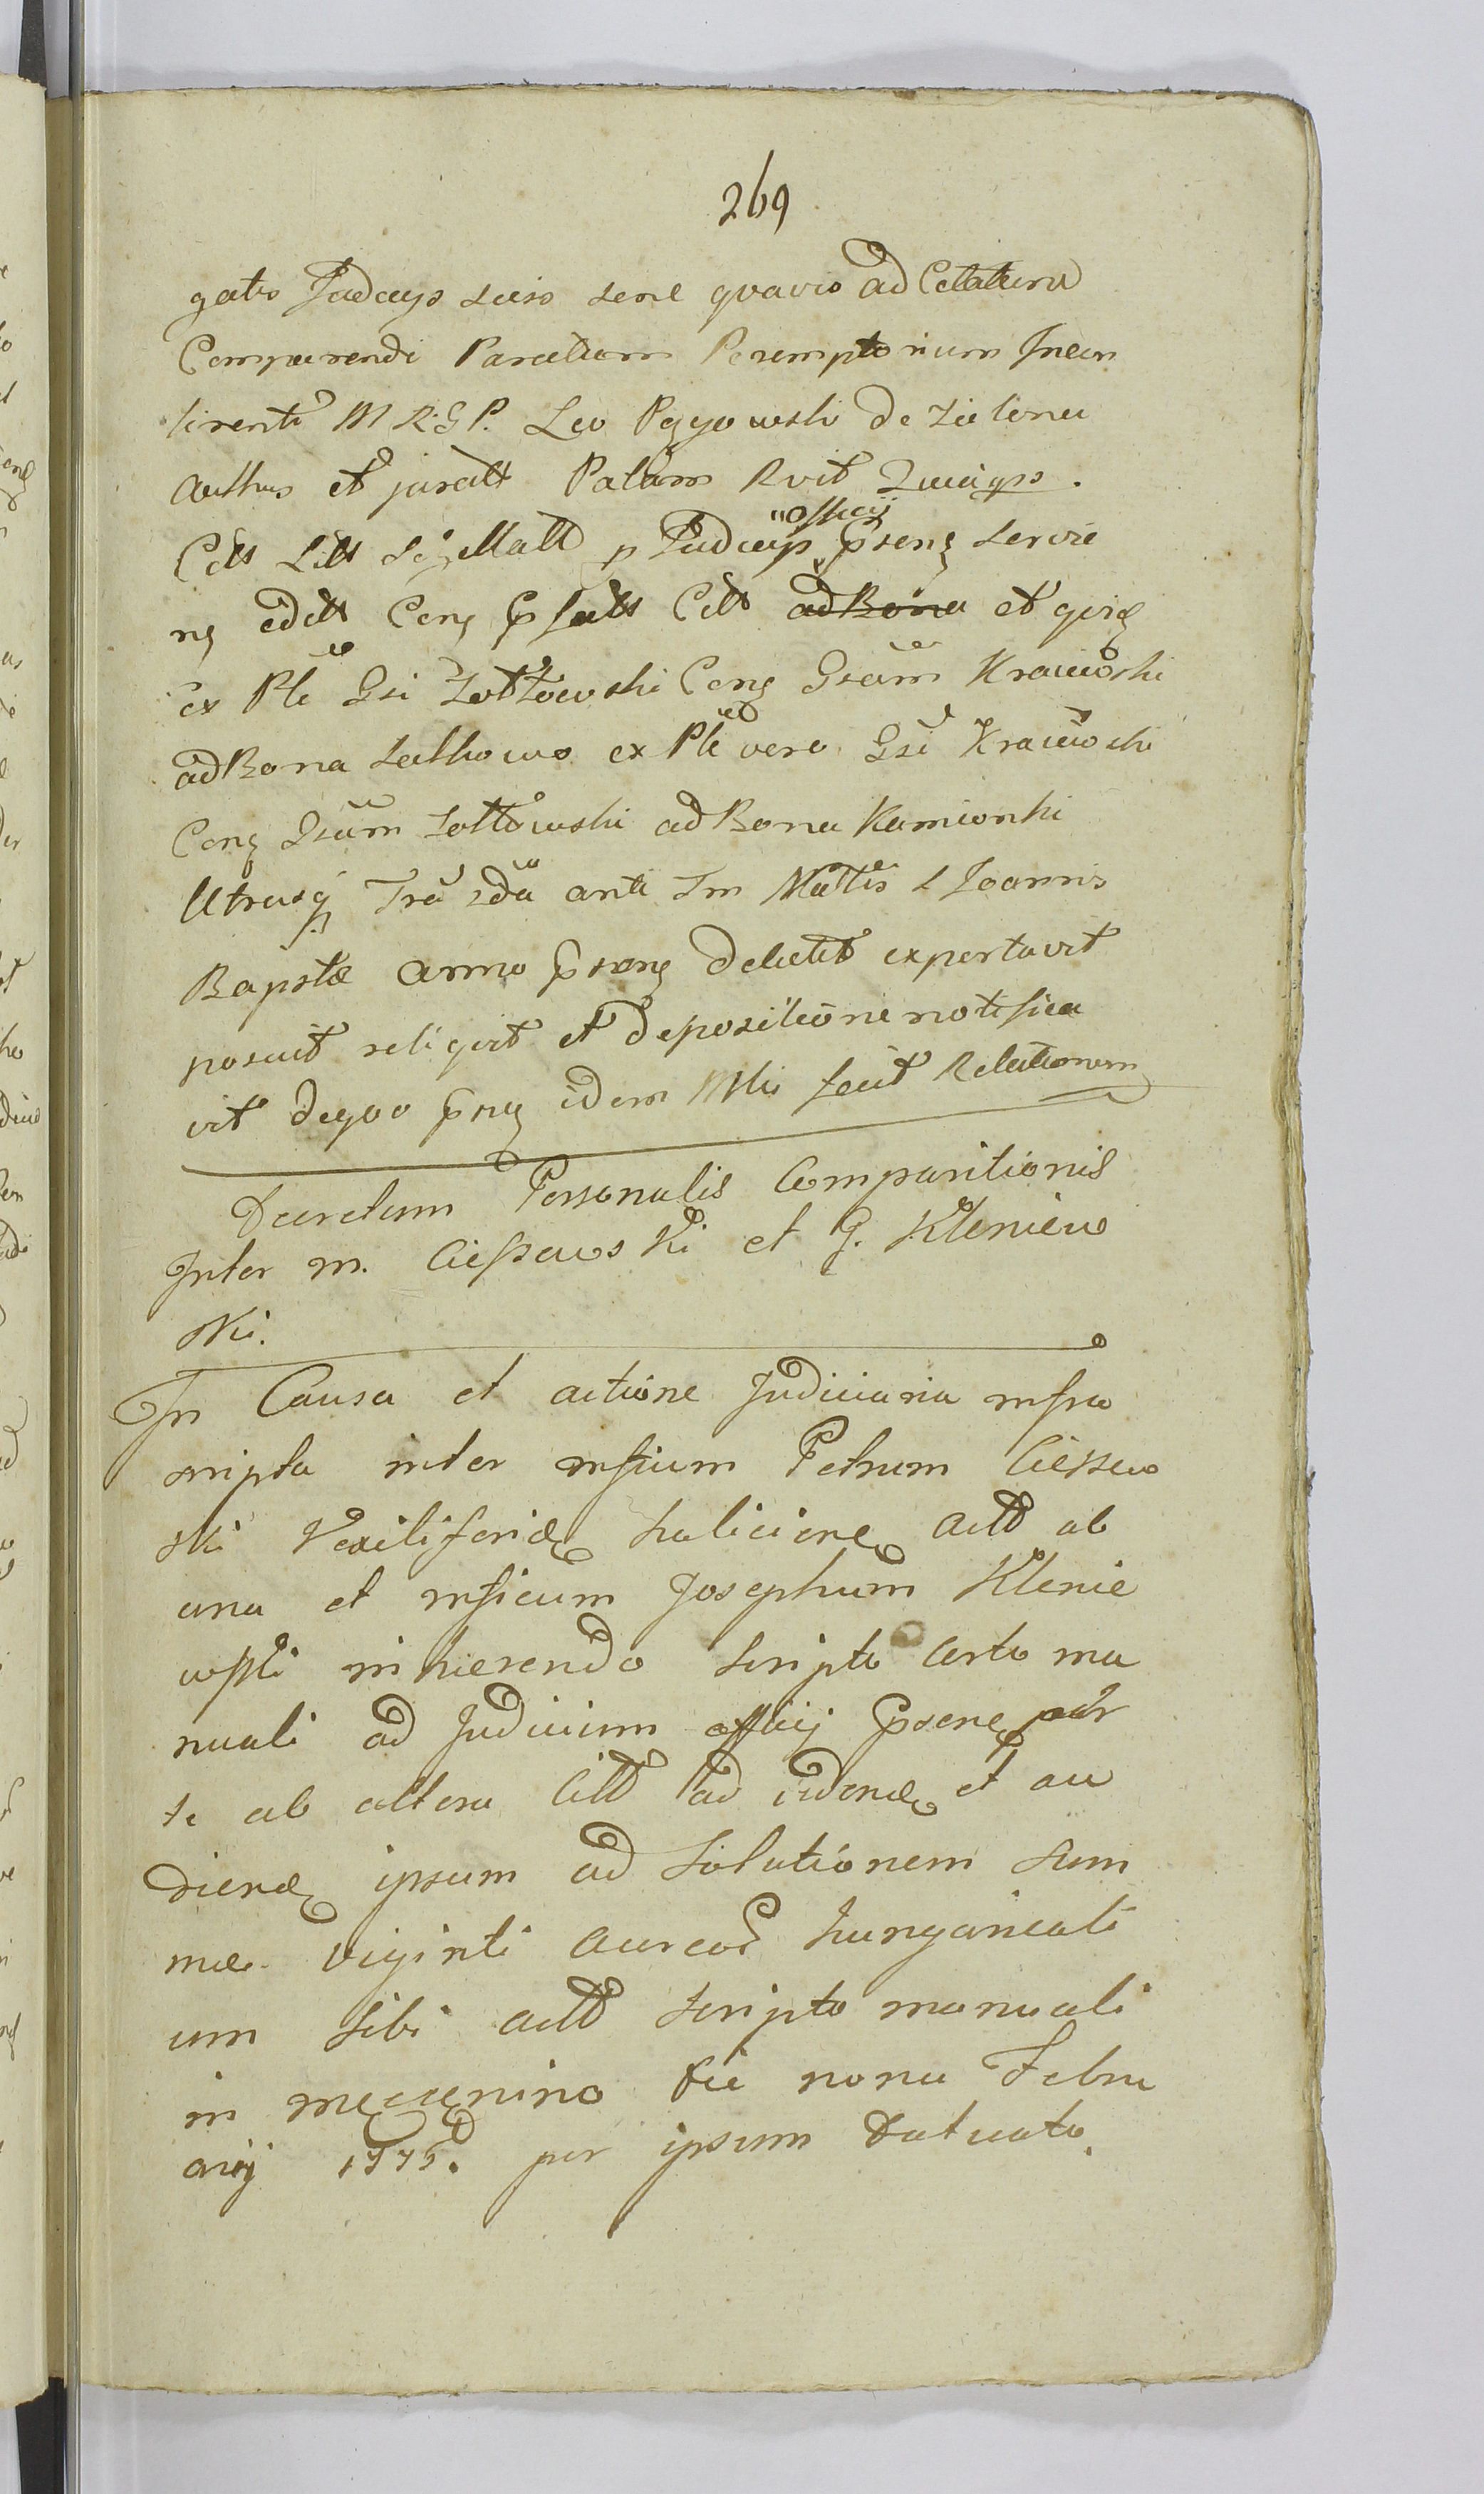 269
gatis Judicijs suis sene quavis ad Citatum
Comparendi Paratum Peremptorium Incur
lirenti M R: G P. Leo de Zielona
Authus et juratt Palam Rvit Quia ips.
Citt Litt Sigillatt p Judicijs "officij psens servie
ns editt Cong p Citt ad Bona et quid
ex Pte Gsi Zottowski Cong Gsum Kraiewski
ad Bona Lathowo ex Pte vero Gsi Kraiewski
Cong Gsum Zottowski ad Bona Kamionki
Utrasq Tra 2da ante Fm Natis S Joannis
Bapstæ anno psens Delatis exportavit
posuit reliqvit et depositione notifica
vit deqvo psns idem Mhi fecit Relationem
Decretum Personalis Comparitionis
Inter m. Ciessewski et G. Kleniew
ski.
In Causa et actione Judiciaria infra
scripta inter msicum Petrum Ciessew
ski Vexiliferidæ haliciens actt ab
una et msicum Josephum Klenie
wski inhærendo scripto certo ma
nuali ad Judicium officij psens par
te ab altera Citt ad videnđ et au
dienđ ipsum ad Solutionem sum
mæ viginti aureos hungaricali
um sibi actt scripto manuali
in die nona Febru
arij 1775. per ipsum Datuato.